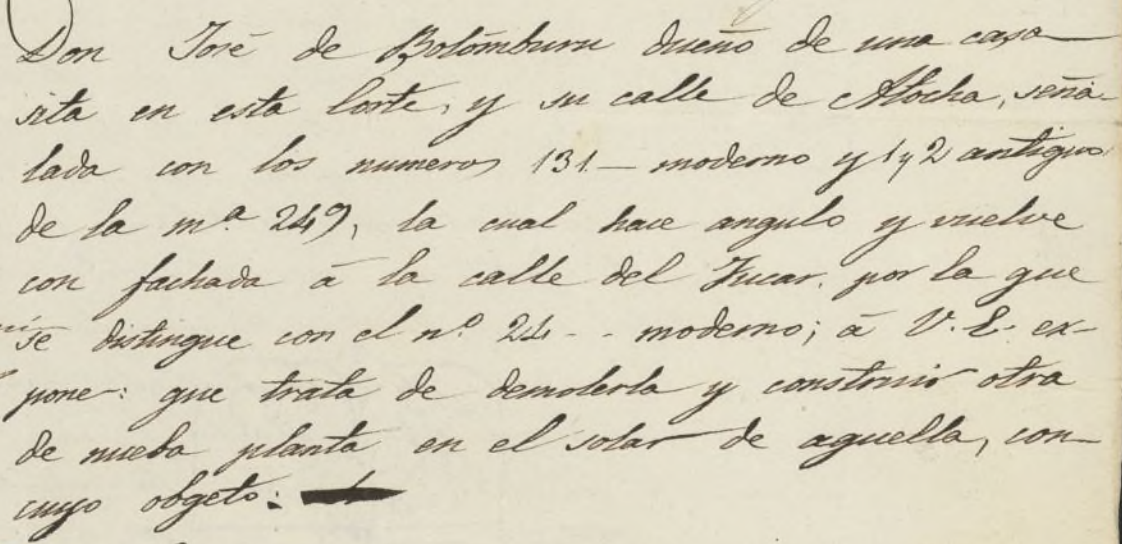 Don José de Bolomburu dueño de una casa
sita en esta Corte, y su calle de Atocha, seña-
lada con los numeros 131 — moderno y 1 y 2 antiguo
de la m.ª 249, la cual hace angulo y vuelve
con fachada á la calle del Fucar, por la que
se distingue con el n.º 24 - - moderno; á V. E. ex-
pone: que trata de demolerla y construir otra
de nueba planta en el solar de aquella, con
cuyo obgeto: